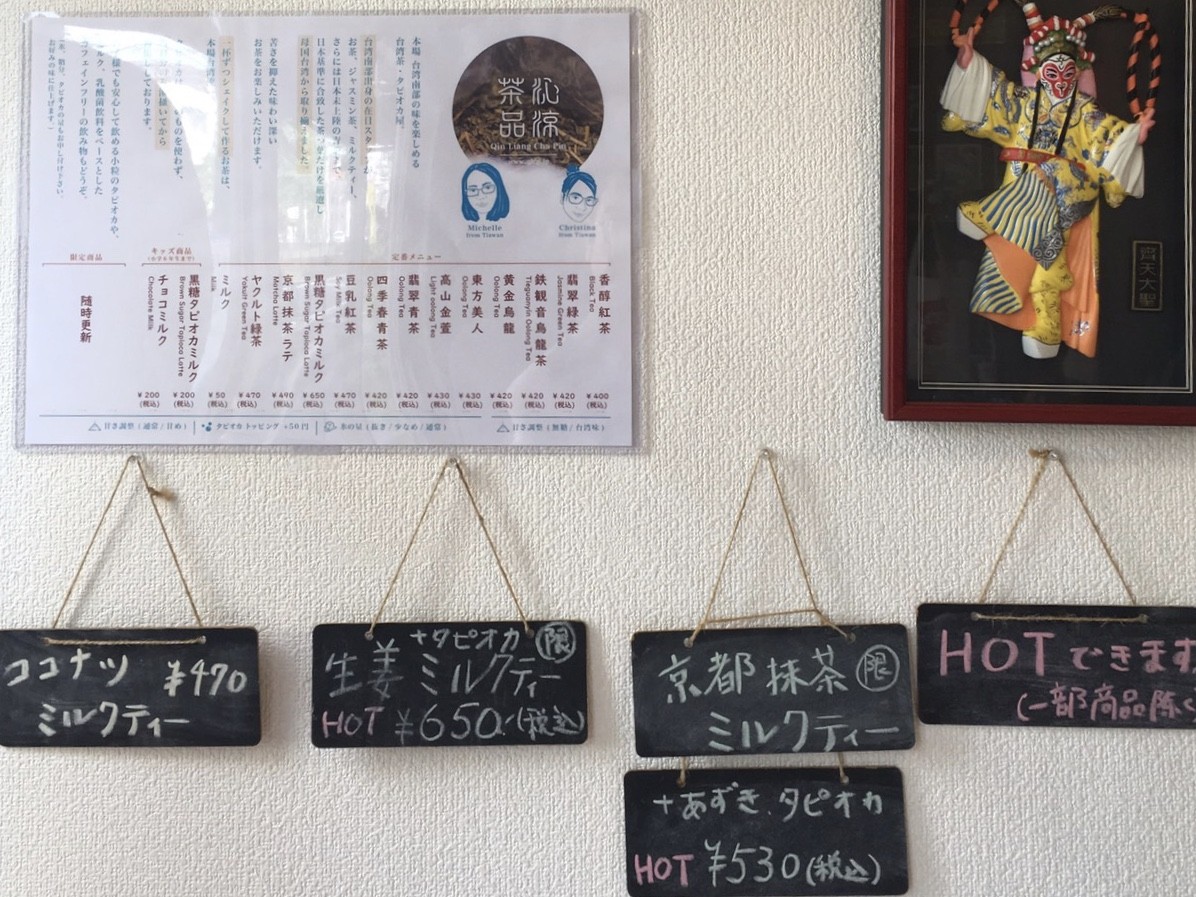 本場 台湾南部の味を楽しめる
台湾茶・タピオカ屋。
台湾南部出身の在日スタ
お茶、ジャスミン茶、ミルクティー、
さらには日本未上陸の
日本基準に合致した茶
母国台湾から取り揃えました。
苦さを抑えた味わい深い
お茶をお楽しみいただけます。
一杯ずつシェイクして作るお茶は、
本場台湾
ものを使わず、
しております。
様でも安心して飲める小粒のタピオカや、
ク、乳酸菌飲料をベースとした
フェインフリーの飲み物もどうぞ。
お好みの味に仕上げます。）
沁涼
茶品
Qin Liang Cha Pin
Michelle
from Tiawan
Christina
from Tiawan
定番メニュー
香醇紅茶
Black Tea
¥400
(税込)
翡翠緑茶
Jasmine Green Tea
¥420
(税込)
鉄観音烏龍茶
Tieguanyin Oolong Tea
¥420
(税込)
黄金烏龍
Oolong Tea
¥420
(税込)
東方美人
Oolong Tea
¥430
(税込)
高山金萱
Light oolong Tea
¥430
(税込)
翡翠青茶
Oolong Tea
¥420
(税込)
四季春青茶
Oolong Tea
¥420
(税込)
豆乳紅茶
Soy Milk Tea
¥470
(税込)
黒糖タピオカミルク
Brown Sugar Tapioca Latte
¥650
(税込)
京都抹茶ラテ
Matcha Latte
¥490
(税込)
ヤクルト緑茶
Yakult Green Tea
¥470
(税込)
ミルク
Milk
¥50
(税込)
キッズ商品
(小学6年生まで)
黒糖タピオカミルク
Brown Sugar Tapioca Latte
¥200
(税込)
チョコミルク
Chocolate Milk
¥200
(税込)
限定商品
随時更新
甘さ調整(通常/甘め)
タピオカトッピング +50円
氷の量(抜き/少なめ/通常)
甘さ調整(無糖/台湾味)
齊天大聖
ココナツ ¥470
ミルクティー
+タピオカ 限
生姜ミルクティー
HOT ¥650.(税込)
京都抹茶 限
ミルクティー
+あずき.タピオカ
HOT ¥530(税込)
HOTできます
(一部商品除く